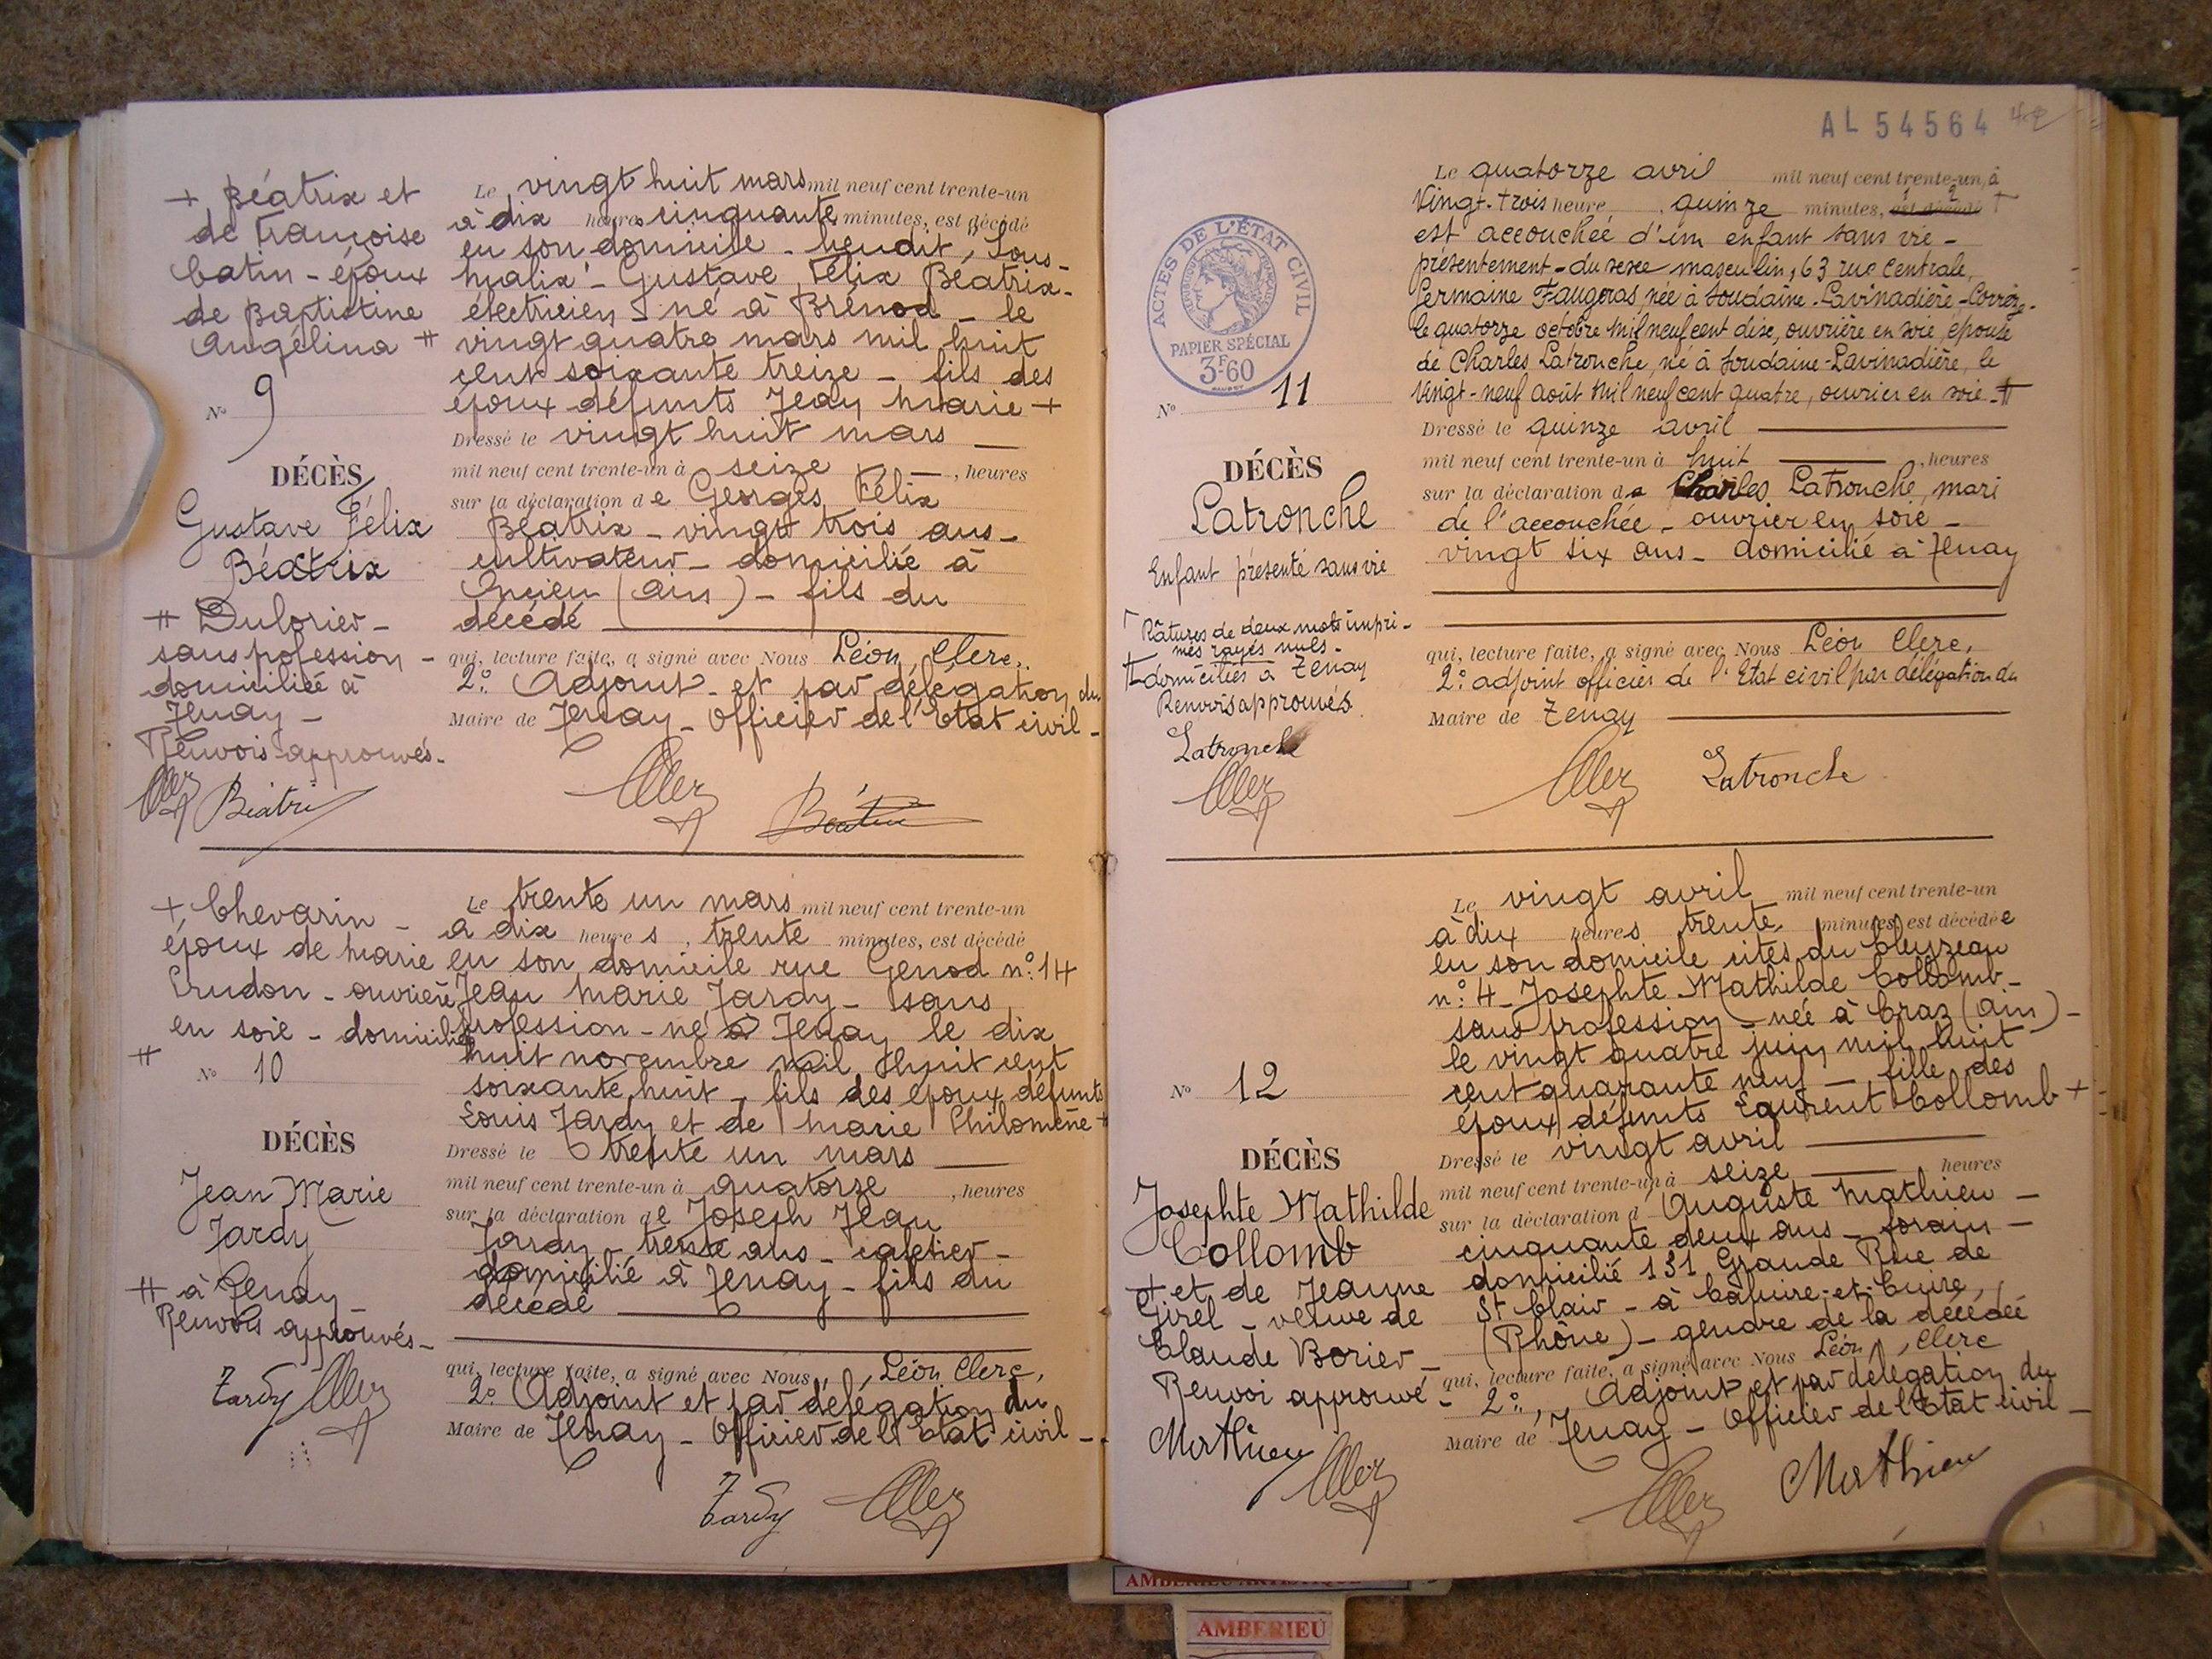 + Béatrix et
de Françoise
Catin - époux
de Baptistine
Angélina ++
N° 9
DÉCÈS
Gustave Félix
Béatrix
++ Dulorier -
sans pofession -
domiciliée à
Tenay -
Renvois approuvés.
Béatrix
Le vingt huit mars mil neuf cent trente-un
à dix heures cinquante minutes, est décédé
en son domicile - lieudit, Sous-
Gustave, Félix Béatrix -
électricien - né à Brénod - le
vingt quatre mars mil huit
cent soixante treize - fils des
époux défunts Jean Marie +
Dressé le vingt huit mars
mil neuf cent trente-un à seize , heures
sur la déclaration de Georges Félix
Béatrix - vingt trois ans -
cultivateur - domicilié à
(Ain) - fils du
décédé
qui, lecture faite, a signé avec Nous Léon, Clerc,
2° Adjoint - et par délégation du
Maire de Tenay - Officier de l'Etat civil -
Béatrix
+ Chevarin -
époux de Marie
Erudon - ouvrière
en soie - domiciliés
++
N° 10
DÉCÈS
Jean Marie
Tardy
++ à Tenay -
Renvois approuvés -
Tardy
Le trente un mars mil neuf cent trente-un
à dix heures , trente minutes, est décédé
en son domicile rue Genod n° 14
Jean Marie Tardy - sans
profession - né à Tenay le dix
huit novembre mil huit cent
soixante huit - fils des époux défunts
Louis Tardy et de Marie Philomène +
Dressé le trente un mars
mil neuf cent trente-un à quatorze , heures
sur la déclaration de Joseph Jean
Tardy trente ans - cafetier -
domicilié à Tenay - fils du
décédé
qui, lecture faite, a signé avec Nous, Léon Clerc,
2° Adjoint et par délégation du
Maire de Tenay - Officier de l'Etat civil -
Tardy
AL 54564 42
ACTES DE L'ÉTAT CIVIL
RÉPUBLIQUE FRANÇAISE
PAPIER SPÉCIAL
3F60
N° 11
DÉCÈS
Latronche
Enfant présenté sans vie
Râtures de deux mots impri-
més rayés nuls -
++ domiciliés à Tenay
Renvois approuvés.
Latronche
Le quatorze avril mil neuf cent trente-un, à
Vingt-trois heure quinze minutes, est décédé
est accouchée d'un enfant sans vie -
présentement - du sexe masculin, 63 rue Centrale,
Germaine Faugeras, née à Soudaine-Lavinadière - Corrèze -
le quatorze octobre mil neuf cent dix, ouvrière en soie, épouse
de Charles Latronche, né à Soudaine-Lavinadière, le
vingt-neuf août mil neuf cent quatre, ouvrier en soie - ++
Dressé le quinze avril
mil neuf cent trente-un à huit , heures
sur la déclaration de Charles Latronche, mari
de l'accouchée - ouvrier en soie -
vingt six ans - domicilié à Tenay
qui, lecture faite, a signé avec Nous Léon Clerc,
2° adjoint officier de l'Etat civil par délégation du
Maire de Tenay
Latronche
N° 12
DÉCÈS
Josephte Mathilde
Collomb
+ et de Jeanne
Girel - veuve de
Claude Borier -
Renvoi approuvé -
Mathieu
Le vingt avril mil neuf cent trente-un
à dix heures trente minutes, est décédée
en son domicile cités du Cleyzeau
n° 4 - Josephte Mathilde Collomb -
sans profession - née à Craz (Ain) -
le vingt quatre juin mil huit
cent quarante neuf - fille des
époux défunts Laurent Collomb +
Dressé le vingt avril
mil neuf cent trente-un à seize heures
sur la déclaration d'Auguste Mathieu -
cinquante deux ans - forain -
domicilié 131 Grande Rue de
St Clair - à Caluire-et-Cuire,
(Rhône) - gendre de la décédée
qui, lecture faite, a signé avec Nous Léon, Clerc
2°, Adjoint et par délégation du
Maire de Tenay - Officier de l'Etat civil -
Mathieu
AMBERIEU ARTISTIQUE
AMBERIEU